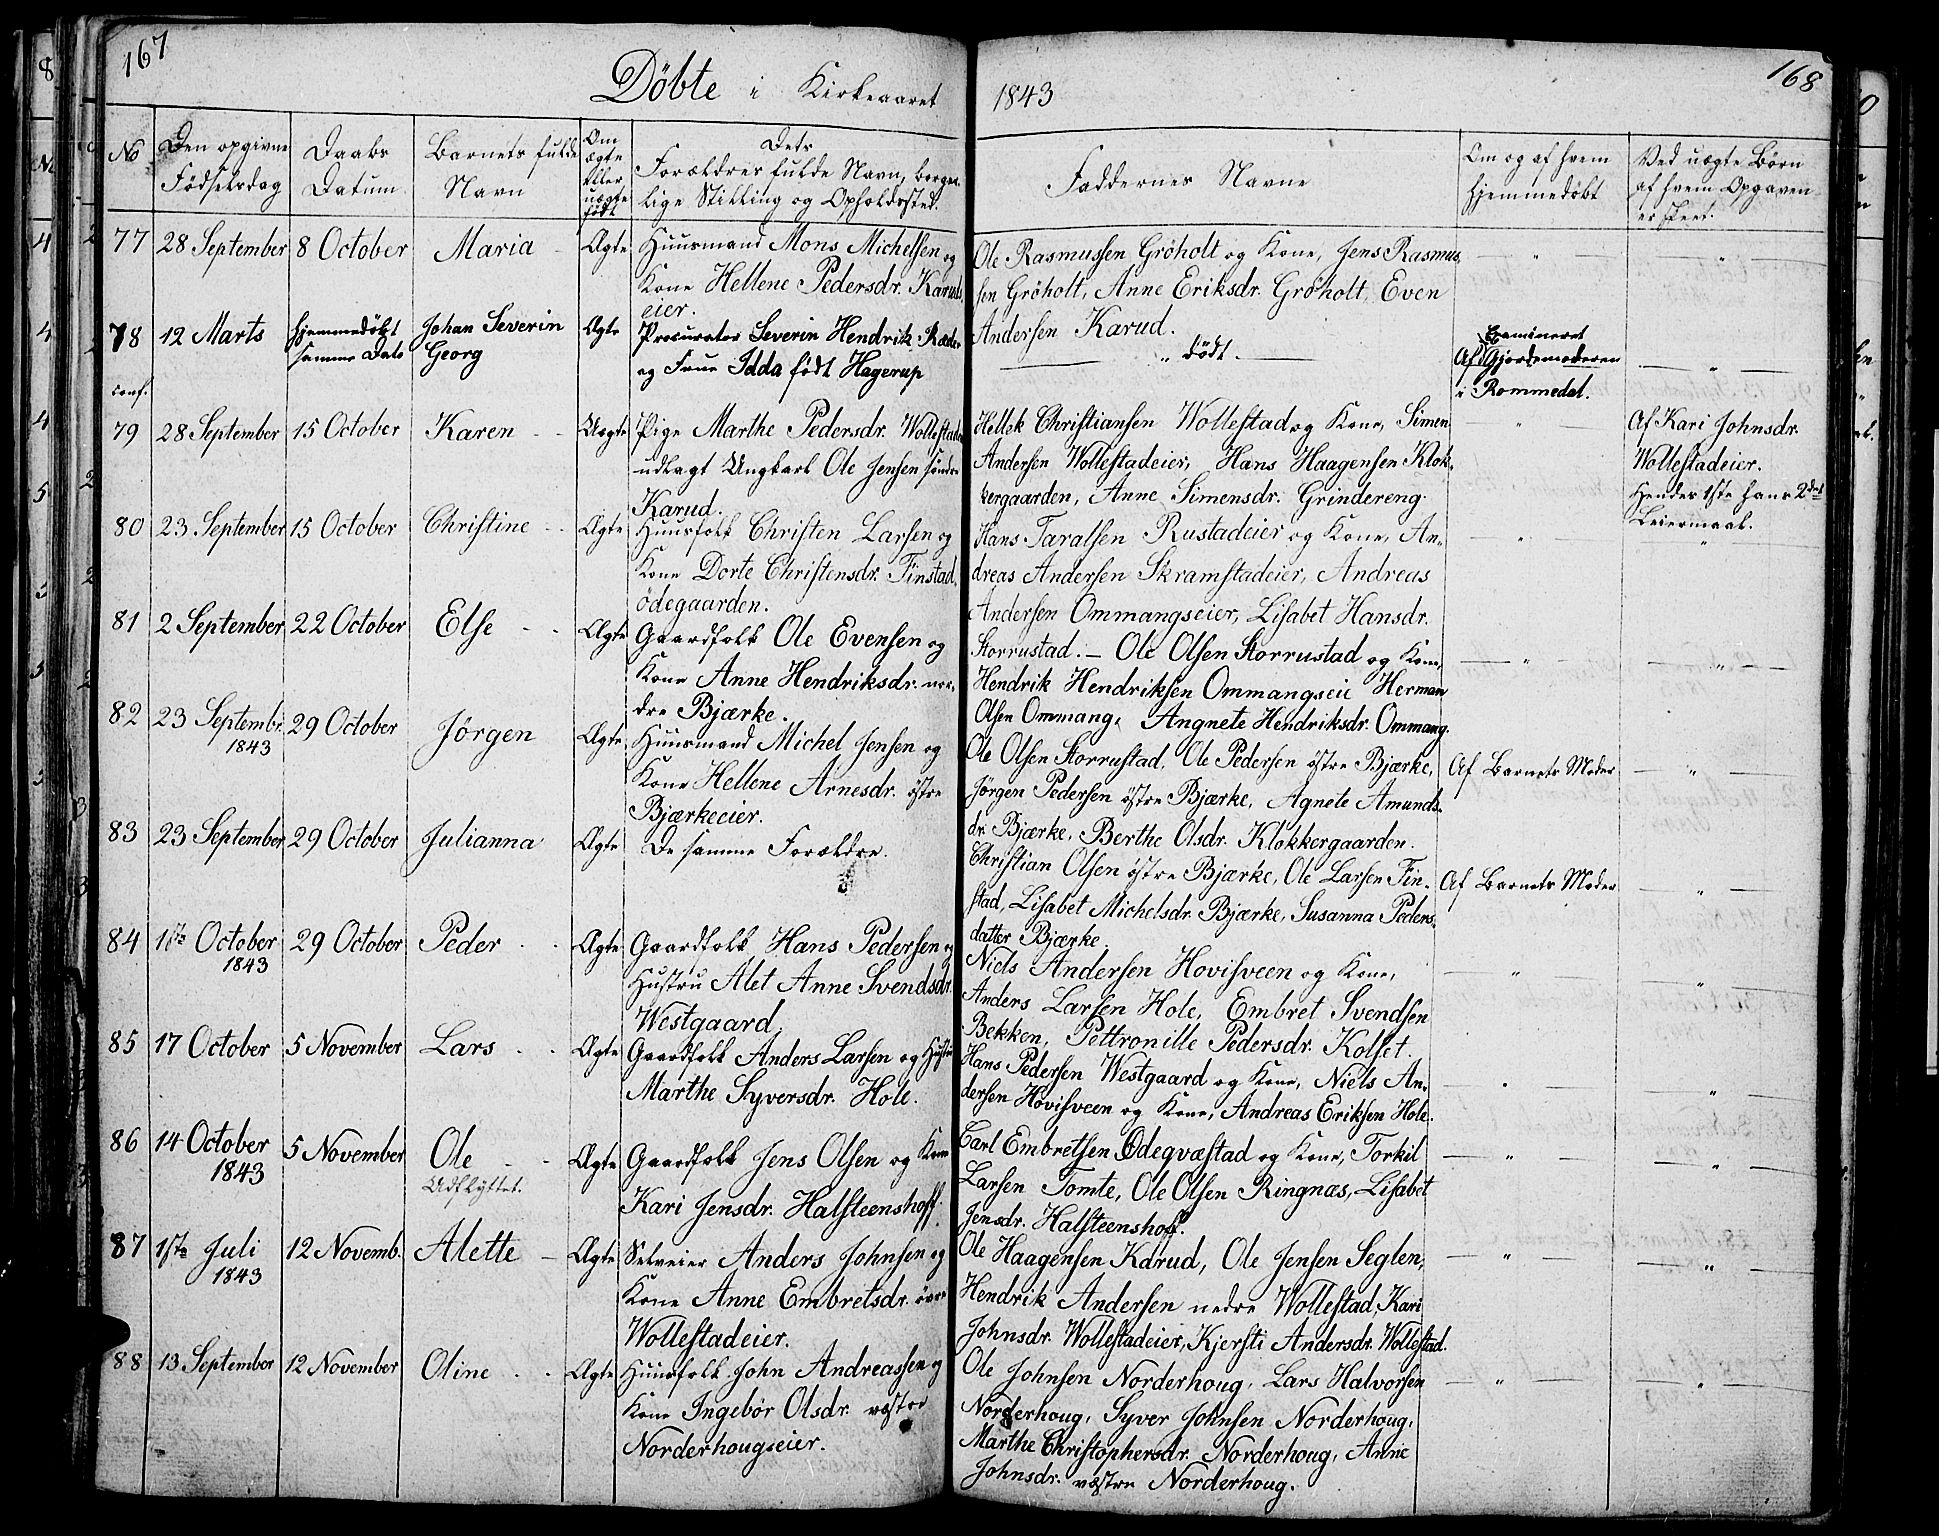 167
Döbte i Kirkeaaret
1843
168
No
Den opgivne Födselsdag
Daabs Datum.
Barnets fulde Navn
Om ægte eller uægte født
Dets Forældres fulde Navn, borgerlige Stilling og Opholdssted.
Faddernes Navne
Om og af hvem hjemmedöbt
Ved uægte Börn af hvem Opgaven er skeet.
77 28 September 8 October Maria Ægte
Huusmand Mons Michelsen og
Kone Hellene Pedersdr. Karuds
eier.
Ole Rasmussen Gröholt og Kone, Jens Rasmus,
sen Gröholt, Anne Eriksdr. Gröholt, Even
Andersen Karud.
78 12 Marts hjemmedöbt samme Dato Johan Severin Georg Ægte
Procurator Severin Hendrik Ræder
og Frue Idda født Hagerup
" dödt.
Af Examineret Gjordemoderen
i Rommedal.
conf.
79 28 September 15 October Karen Uægte
Pige Marthe Pedersdr. Wollestade
udlagt Ungkarl Ole Jensen söndre
Karud.
Hellek Christiansen Wollestad og Kone, Simen
Andersen Wollestadeier, Hans Haagensen Klok,
kergaarden, Anne Simensdr. Grindereng.
Af Kari Johnsdr.
Wollestadeier.
Hendes 1ste hans 2det
Leiermaal.
80 23 September 15 October Christine Ægte
Huusfolk Christen Larsen og
Kone Dorte Christensdr. Finstad,
ödegaarden.
Hans Taralsen Rustadeier og Kone, An,
dreas Andersen Skramstadeier, Andreas
Andersen Ommangseier, Lisabet Hansdr.
Storrustad.
81 2 September 22 October Else Ægte
Gaardfolk Ole Evensen og
Kone Anne Hendriksdr. nor,
dre Bjærke.
Ole Olsen Storrustad og Kone,
Hendrik Hendriksen Ommangseie Herman
Olsen Ommang, Angnete Hendriksdr. Ommang.
82 23 Septembr. 1843 29 October Jörgen Ægte
Huusmand Michel Jensen og
Kone Hellene Arnesdr. östre
Bjærkeeier.
Ole Olsen Storrustad, Ole Pedersen östre Bjærke,
Jörgen Pedersen östre Bjærke, Agnete Amunds,
dr. Bjærke, Berthe Olsdr. Klokkergaarden.
Af Barnets Moder
83 23 September 29 October Julianna Ægte
De samme Forældre.
Christian Olsen östre Bjærke, Ole Larsen Fin,
stad, Lisabet Michelsdr. Bjærke, Susanna Peders,
datter Bjærke.
Af Barnets Moder
84 1ste October 1843 29 October Peder Ægte
Gaardfolk Hans Pedersen og
Hustru Alet Anne Svendsdr.
Westgaard.
Niels Andersen Hovisveen og Kone,
Anders Larsen Hole, Embret Svendsen
Bekken, Pettronille Pedersdr. Kolset.
85 17 October 5 November Lars Ægte
Gaardfolk Anders Larsen og Hustru
Marthe Syversdr. Hole.
Hans Pedersen Westgaard og Kone, Niels An,
dersen Hovisveen og Kone, Andreas Eriksen Hole.
86 14 October 1843 5 November Ole Udflyttet. Ægte
Gaardfolk Jens Olsen og Kone
Kari Jensdr. Halsteenshoff.
Carl Embretsen Ödeqvæstad og Kone, Torkil
Larsen Tomte, Ole Olsen Ringnæs, Lisabet
Jensdr. Halsteenshoff.
87 1ste Juli 1843 12 Novemb. Alette Ægte
Selveier Anders Johnsen og
Kone Anne Embretsdr. övre
Wollestadeier.
Ole Haagensen Karud, Ole Jensen Seglen,
Hendrik Andersen nedre Wollestad, Kari
Johnsdr. Wollestadeier, Kjersti Andersdr. Wollestad.
88 13 September 12 November Oline Ægte
Huusfolk John Andreassen og
Kone Ingebör Olsdr. væstre
Norderhougseier.
Ole Johnsen Norderhoug, Lars Halvorsen
Norderhoug, Syver Johnsen Norderhoug,
Marthe Christophersdr. Norderhoug, Anne
Johnsdr. væstre Norderhoug.